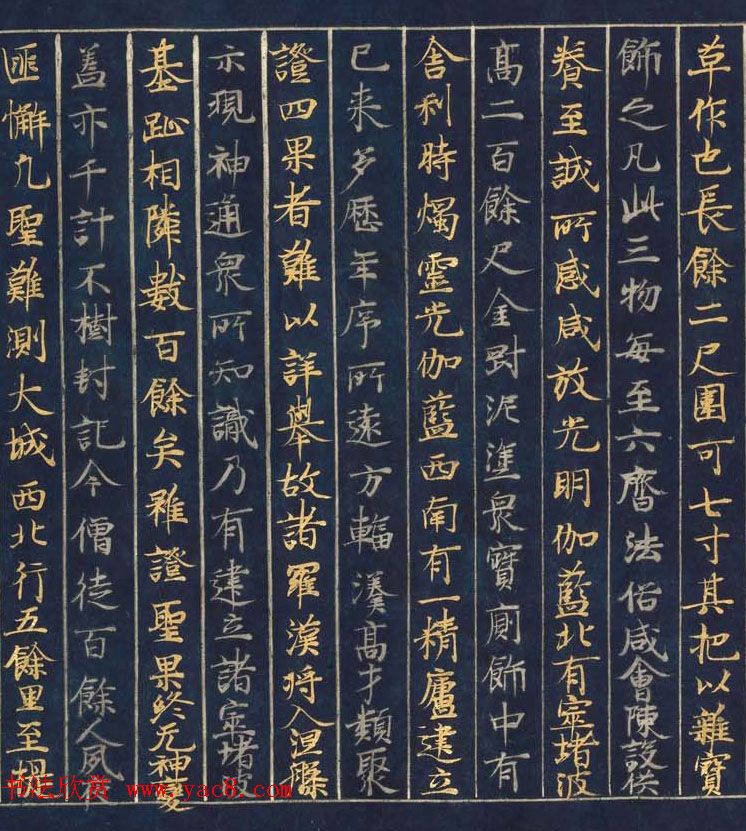 草作也長餘二尺圍可七寸其把以雜寶
飾之凡此三物每至六齋法俗咸會陳設供
養至誠所感咸放光明伽藍北有窣堵波
高二百餘尺金剛泥塗眾寶廁飾中有
舍利時燭靈光伽藍西南有一精廬建立
已来多歷年序所遠方輻湊高才類聚
證四果者難以詳舉故諸羅漢將入涅槃
示現神通眾所知識乃有建立諸窣堵波
基趾相隣數百餘矣雖證聖果終无神變
蓋亦千計不樹封記今僧徒百餘人夙
匪懈凡聖難測大城西北行五餘里至
书法欣赏 www.yac8.com